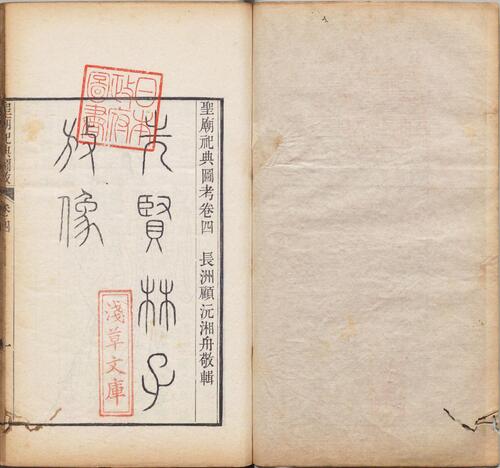 聖廟祀典圖考卷四 長洲顧沅湘舟敬輯
先賢林子
放像
日本
政府
圖書
淺草文庫
聖廟祀典圖考 卷四